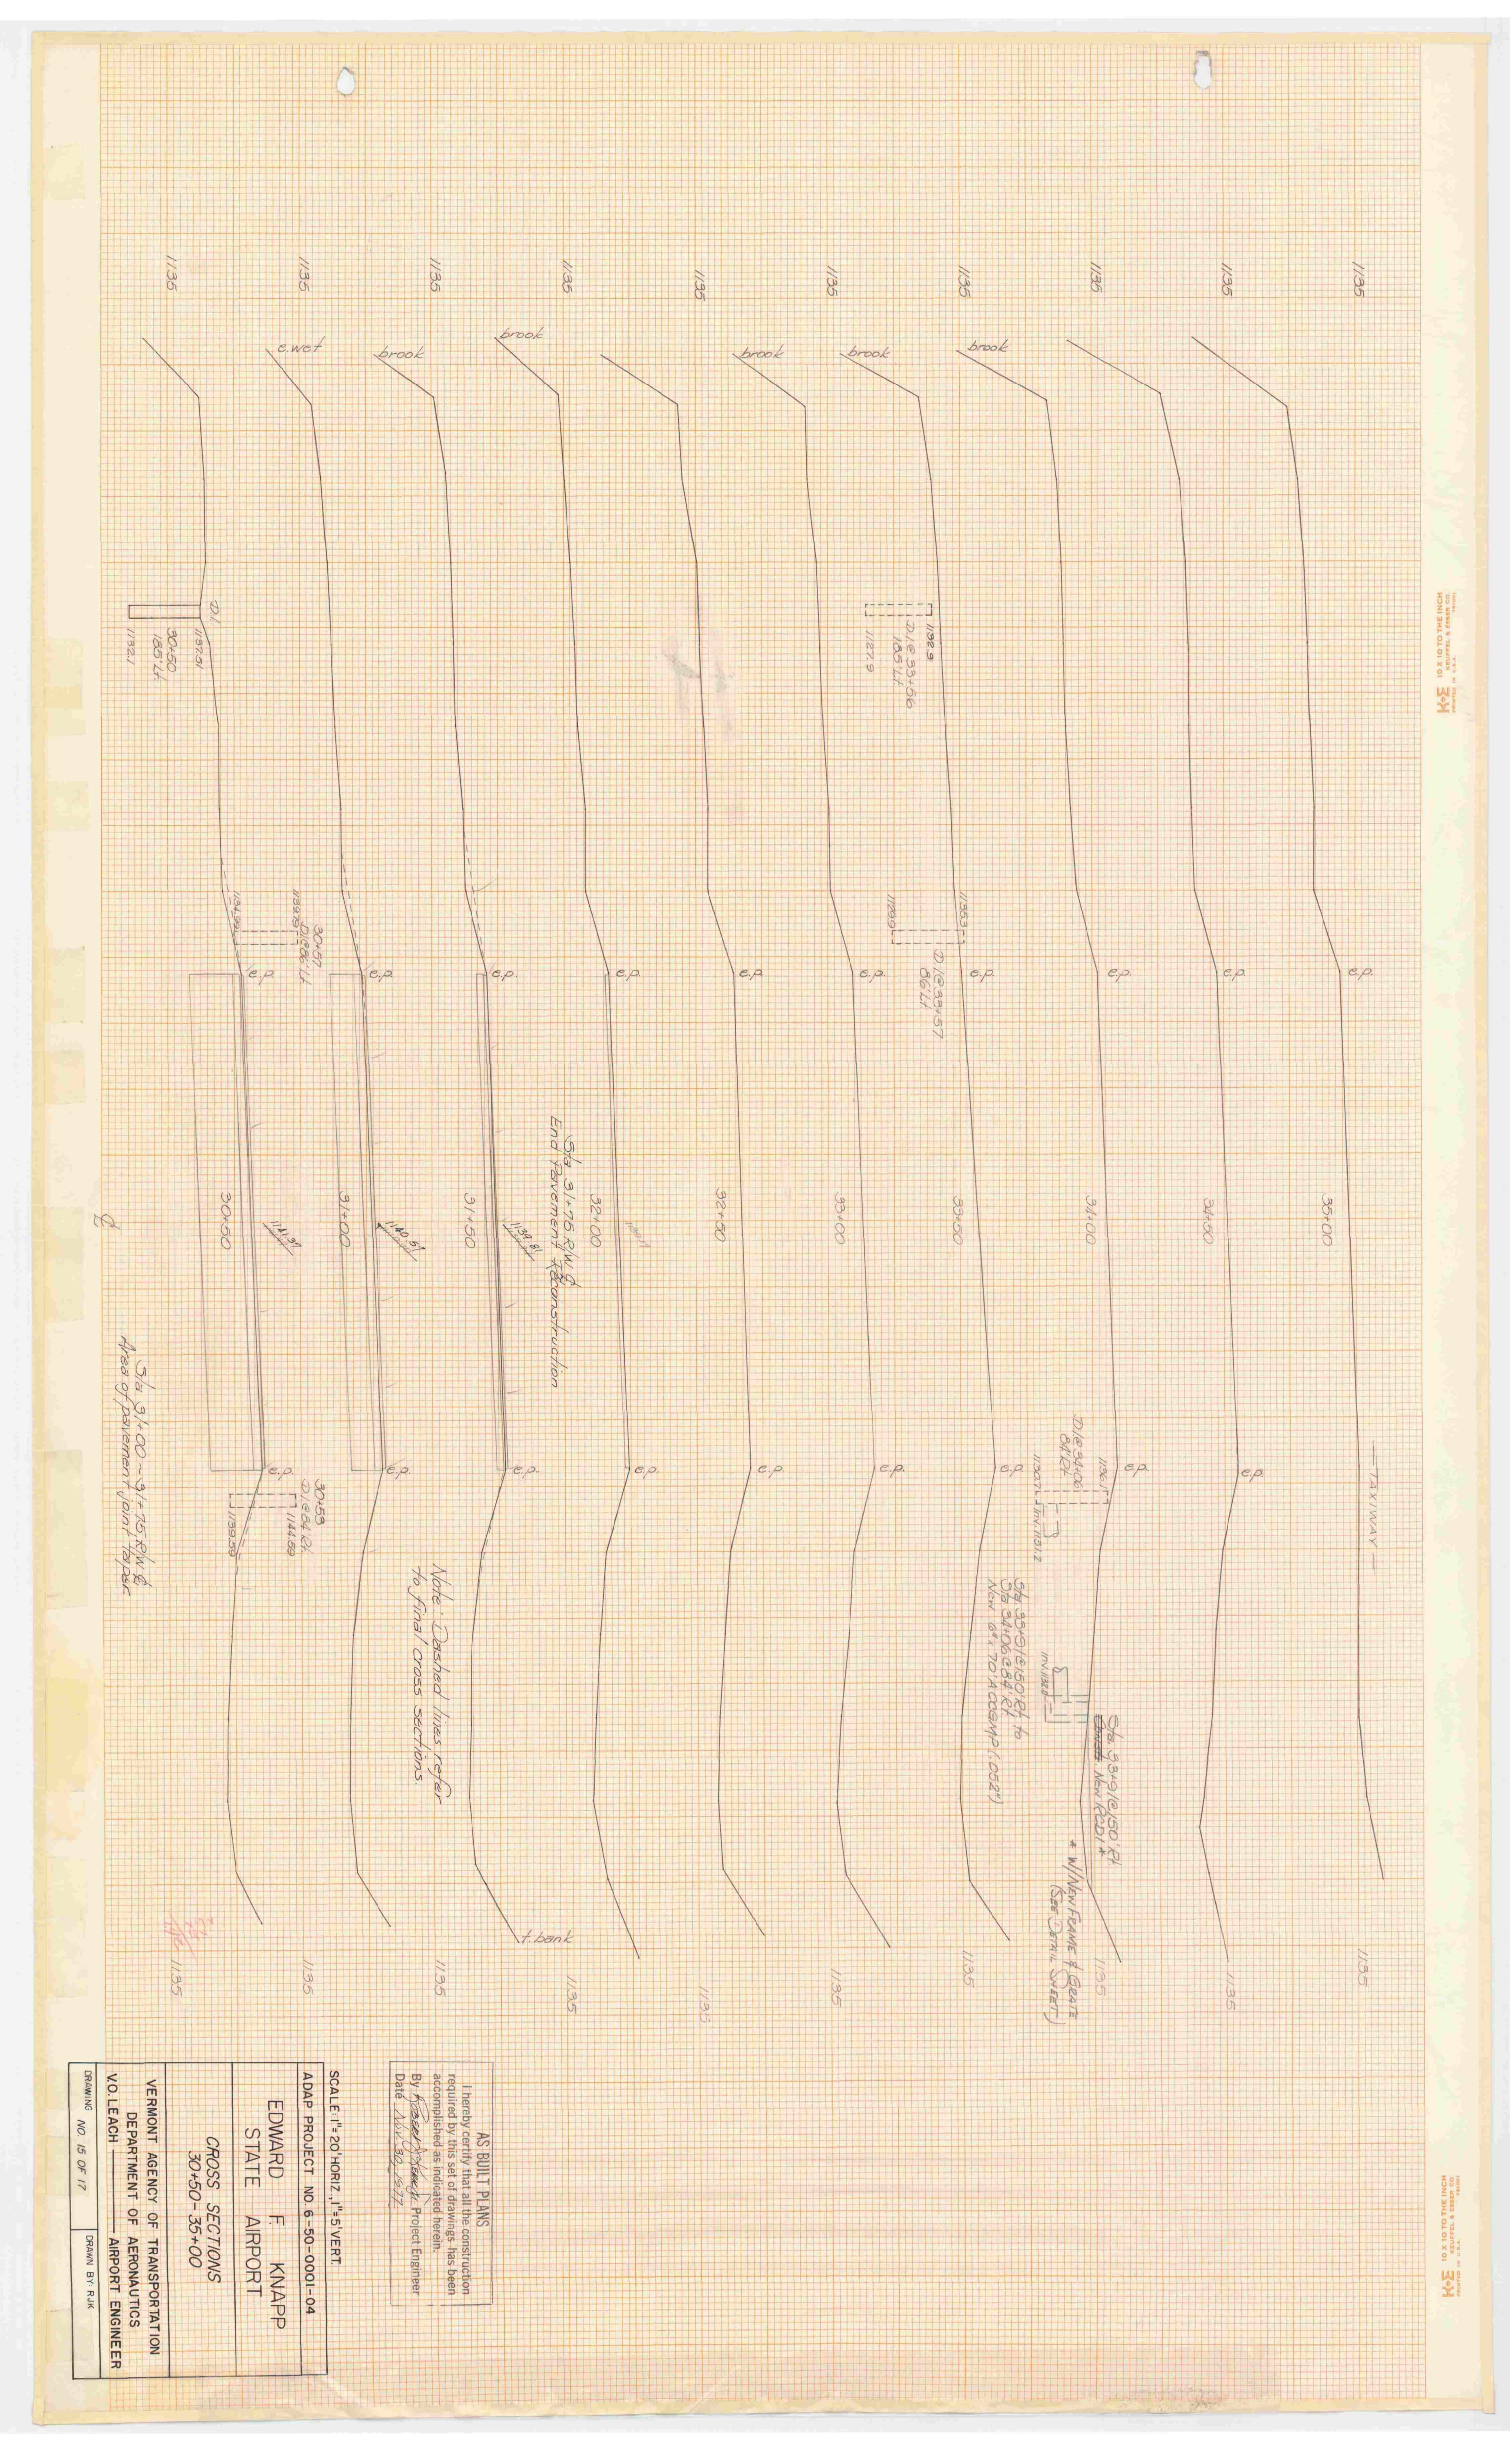 K+E 10 X 10 TO THE INCH
KEUFFEL & ESSER CO.
1135
1135
1135
1135
1135
1135
1135
1135
1135
1135
35+00
e.p.
— TAXIWAY —
1135
34+50
e.p.
e.p.
1135
brook
34+00
e.p.
e.p.
D/@34+06
84' Rt
1136.5
1130.7
Inv. 1131.2
Sta. 33+91@150' Rt
New RCDI *
* W/NEW FRAME & GRATE
(SEE DETAIL SHEET)
1135
Sta 33+91@150' Rt to
Sta 34+06@84' Rt
brook
33+50
D/@33+56
185' Lt
1132.9
1127.9
1135.3
1129.9
D/@33+57
86' Lt
e.p.
e.p.
1135
brook
33+00
e.p.
e.p.
1135
32+50
e.p.
e.p.
1135
brook
32+00
e.p.
e.p.
Sta 31+75 R/W ℄
End Pavement Reconstruction
1135
brook
31+50
e.p.
1139.81
e.p.
t. bank
1135
Note: Dashed lines refer
to final cross sections
e. wet
31+00
e.p.
1140.57
e.p.
1135
D.I.
1137.31
30+50
185' Lt.
1132.1
30+57
D/@86' Lt
1139.79
1134.99
e.p.
30+50
1141.37
e.p.
30+53
D/@84' Rt
1144.59
1139.59
1135
℄
Sta 31+00 ~ 31+75 R/W ℄
Area of pavement joint taper
AS BUILT PLANS
I hereby certify that all the construction
required by this set of drawings has been
accomplished as indicated herein.
By Project Engineer
Date Nov 30, 1977
SCALE: 1"=20' HORIZ., 1"=5' VERT.
ADAP PROJECT NO. 6-50-0001-04
EDWARD F. KNAPP
STATE AIRPORT
CROSS SECTIONS
30+50-35+00
VERMONT AGENCY OF TRANSPORTATION
DEPARTMENT OF AERONAUTICS
V.O. LEACH — AIRPORT ENGINEER
DRAWING NO. 15 OF 17
DRAWN BY: RJK
K+E 10 X 10 TO THE INCH